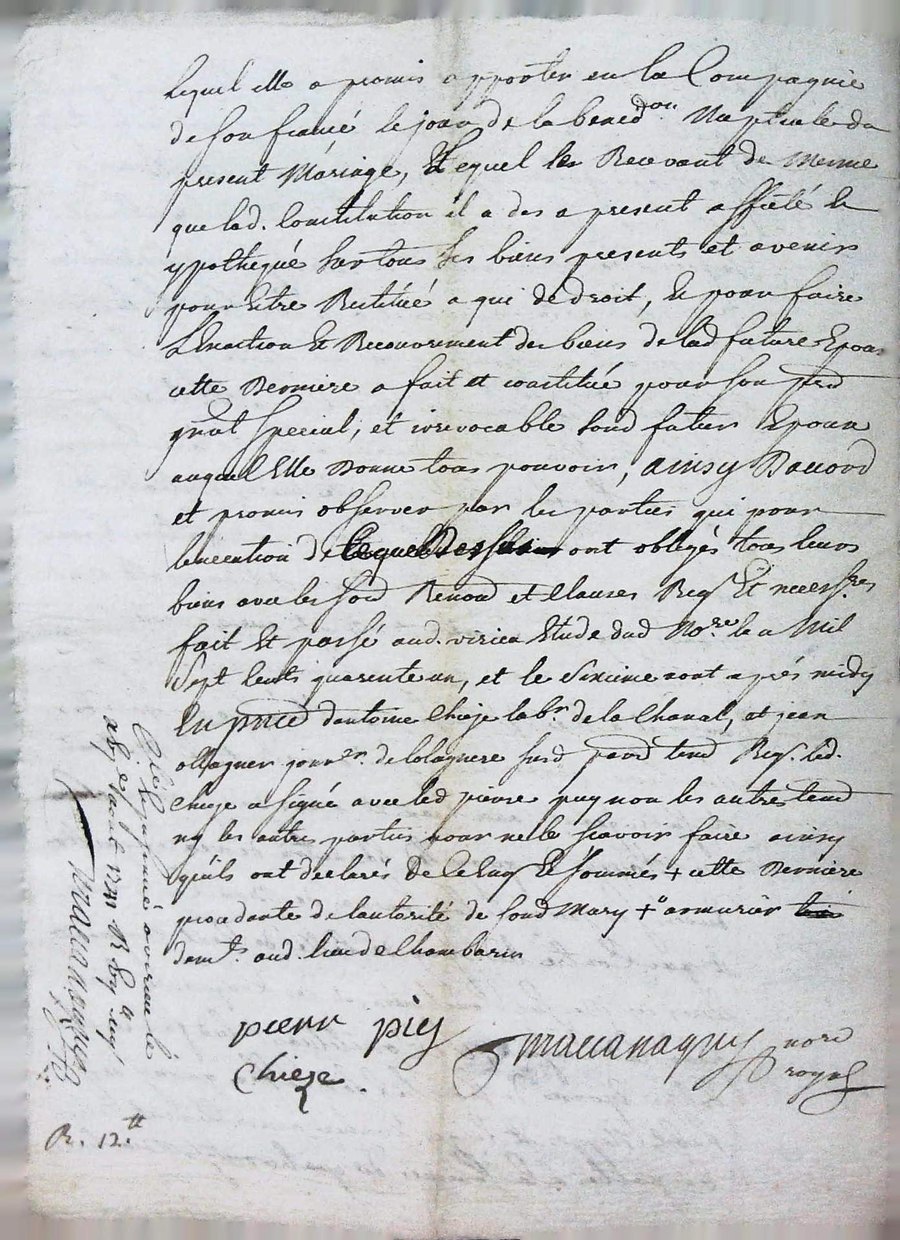 lequel elle a promis apporter en la Compagnie
de son fiancé le jour de la bened.on Nuptiale du
present Mariage, Et lequel les Recevant de Mesme
que lad. Constitution il a des a present affété et
ypothequé sur tous ses biens presents et avenir
pour Etre Restitué a qui de droit, Et pour faire
L'Exaction Et Recouvrement des biens de lad future Epouse
cette Derniere a fait et constitué pour son prd
gnãl Special, et irrevocable sond futur Epoux
auquel Elle Donne tous pouvoir, ainsy Dacord
et promis observer par les parties qui pour
lexecution de ont obligés tous leurs
biens avec les soud Renond et Clauses Reqs Et necess.res
fait Et passé aud. virieu Etude dud No.re le a Mil
Sept Cents quarente un, et le Sixieme aout après midy
En pnce dantoine Chieze lab.r de la Chanal, et jean
ollagner jour.er de lolagnere susd tend Reqs. led.
Chieze a signé avec led pierre les autres tend
ny les autres parties pour ne le scavoir faire ainsy
quils ont declarés de ce Enqs Et sommés + cette Derniere
procedante de lautorité de soud Mary +° armurier
dem.t aud. lieu de Chambarin
pierr
Chieze
nore
royal
Con.lé
aout 1741 R
R. 12.tt